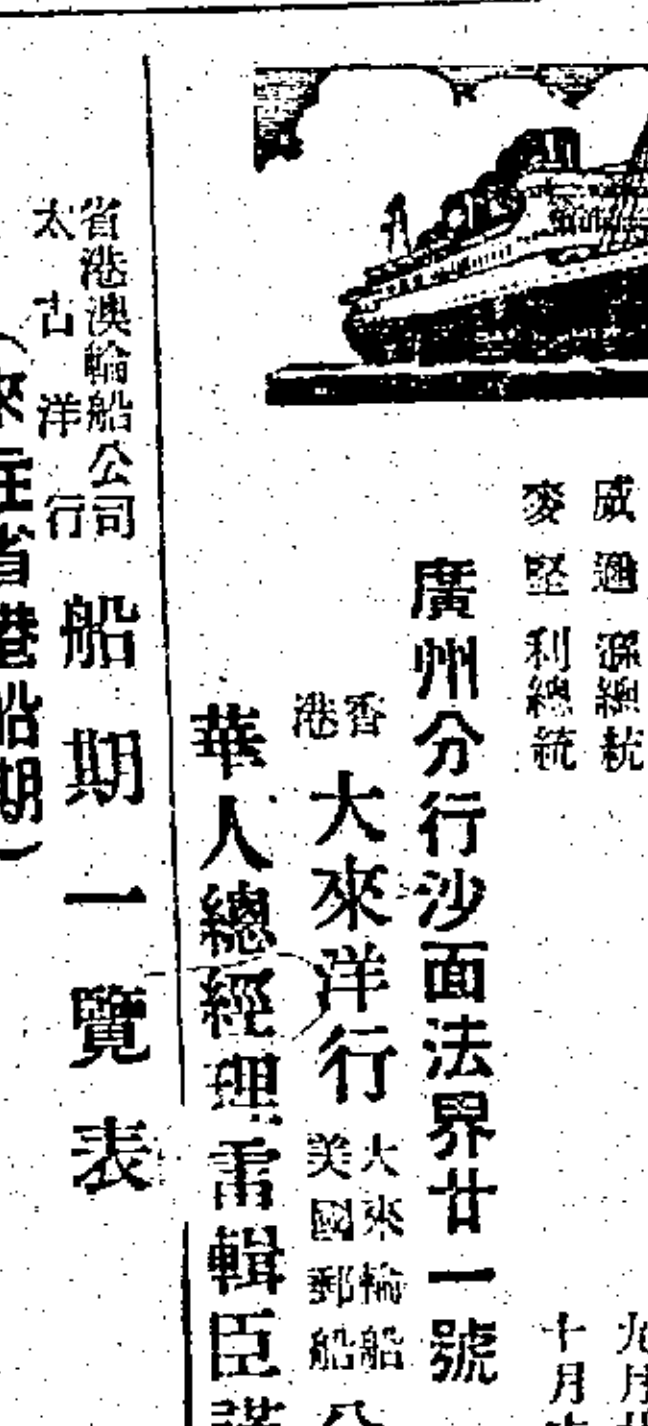 威遜總統
麥堅利總統
九月
十月
廣州分行沙面法界廿一號
香港 大來洋行 大來輪船 美國郵船 公
華人總經理雷輯臣謹
省港澳輪船公司
太古洋行
船期一覽表
(來往省港船期)